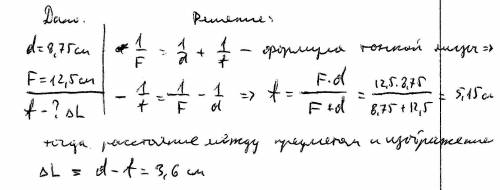 Дано: Решение:
d = 8,75 см 1/F = 1/d + 1/f - формула тонкой линзы =>
F = 12,5 см - 1/f = 1/F - 1/d => f = F·d/F+d = 12,5·8,75/8,75+12,5 = 5,15 см
f - ? ΔL
тогда расстояние между предметом и изображение
ΔL = d - f = 3,6 см